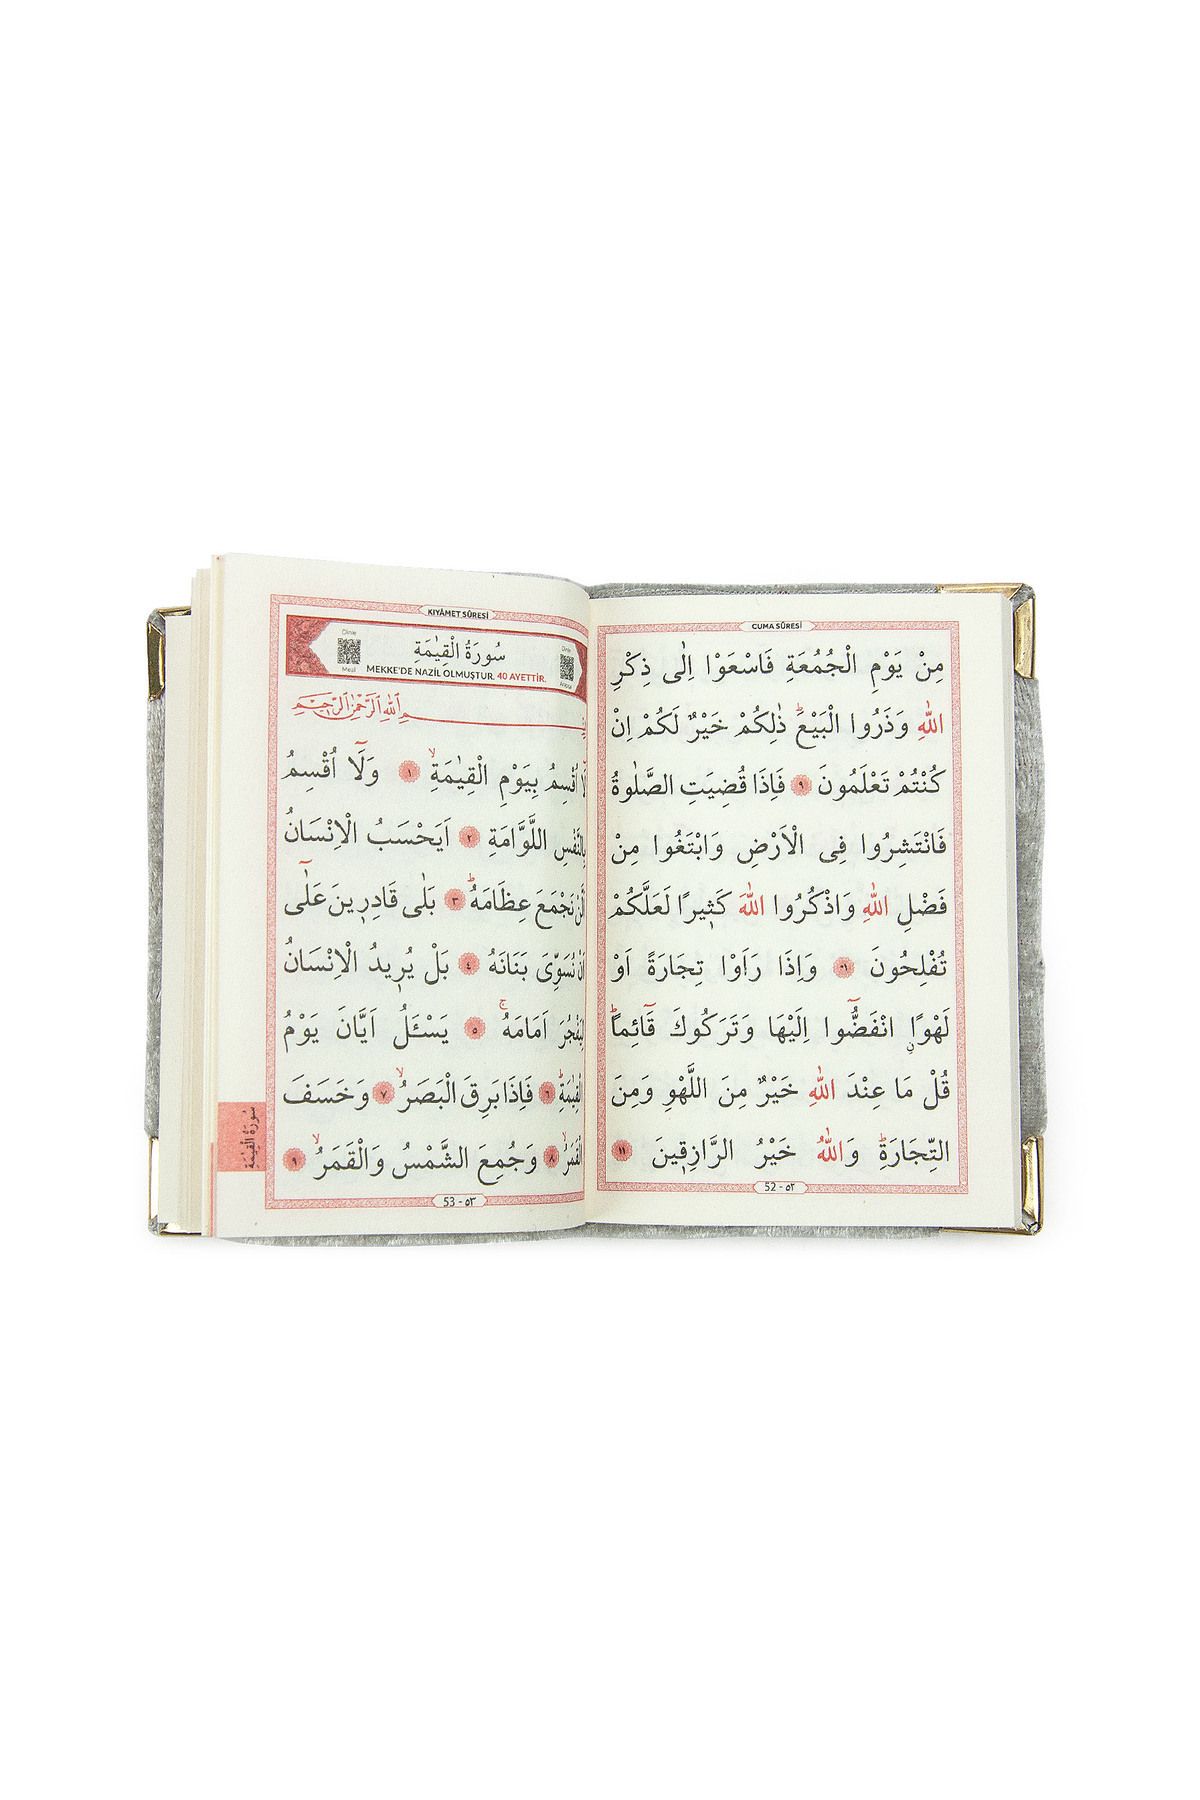 CUMA SÛRESİ
مِنْ يَوْمِ الْجُمُعَةِ فَاسْعَوْا اِلٰى ذِكْرِ
اللّٰهِ وَذَرُوا الْبَيْعَۜ ذٰلِكُمْ خَيْرٌ لَكُمْ اِنْ
كُنْتُمْ تَعْلَمُونَ ٩ فَاِذَا قُضِيَتِ الصَّلٰوةُ
فَانْتَشِرُوا فِى الْاَرْضِ وَابْتَغُوا مِنْ
فَضْلِ اللّٰهِ وَاذْكُرُوا اللّٰهَ كَثٖيرًا لَعَلَّكُمْ
تُفْلِحُونَ ١٠ وَاِذَا رَاَوْا تِجَارَةً اَوْ
لَهْوًاۨ انْفَضُّٓوا اِلَيْهَا وَتَرَكُوكَ قَٓائِماًۜ
قُلْ مَا عِنْدَ اللّٰهِ خَيْرٌ مِنَ اللَّهْوِ وَمِنَ
التِّجَارَةِۜ وَاللّٰهُ خَيْرُ الرَّازِقٖينَ ١١
52 - ٥٢
KIYÂMET SÛRESİ
Dinle
سُورَةُ الْقِيٰمَةِ
Dinle
Meal
MEKKE'DE NAZİL OLMUŞTUR. 40 AYETTİR.
Arapça
بِسْمِ اللّٰهِ الرَّحْمٰنِ الرَّحٖيمِ
لَٓا اُقْسِمُ بِيَوْمِ الْقِيٰمَةِۙ ١ وَلَٓا اُقْسِمُ
بِالنَّفْسِ اللَّوَّامَةِ ٢ اَيَحْسَبُ الْاِنْسَانُ
اَلَّنْ نَجْمَعَ عِظَامَهُۜ ٣ بَلٰى قَادِرٖينَ عَلٰٓى
اَنْ نُسَوِّىَ بَنَانَهُ ٤ بَلْ يُرٖيدُ الْاِنْسَانُ
لِيَفْجُرَ اَمَامَهُۚ ٥ يَسْـَٔلُ اَيَّانَ يَوْمُ
الْقِيٰمَةِۜ ٦ فَاِذَا بَرِقَ الْبَصَرُۙ ٧ وَخَسَفَ
الْقَمَرُۙ ٨ وَجُمِعَ الشَّمْسُ وَالْقَمَرُۙ ٩
53 - ٥٣
سُورَةُ الْقِيٰمَةِ